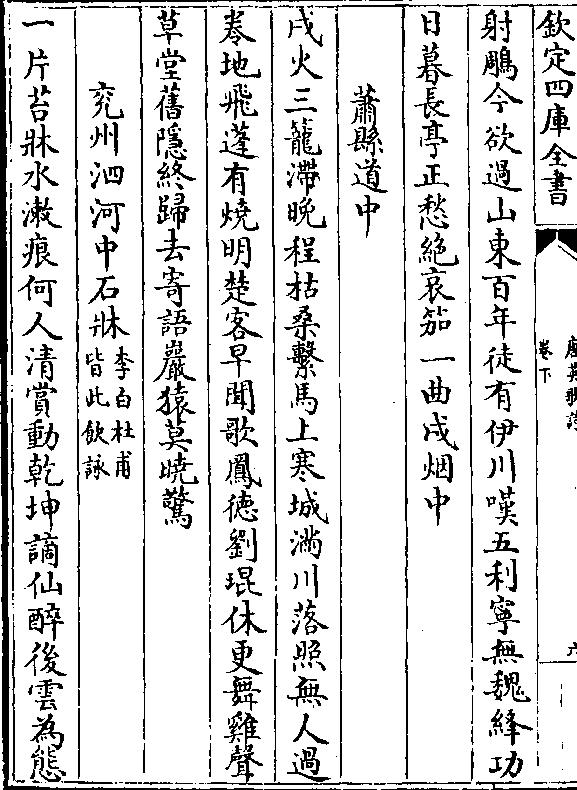 欽定四庫全書
卷下
六
射鵰今欲過山東百年徒有伊川嘆五利寧無魏絳功
日暮長亭正愁絕哀笳一曲戍烟中
蕭縣道中
戍火三籠滯晚程枯桑繫馬上寒城滿川落照無人過
卷地飛蓬有燒明楚客早聞歌鳳德劉琨休更舞雞聲
草堂舊隱終歸去寄語巖猿莫曉驚
兖州泗河中石牀李白杜甫皆此飲詠
一片苔牀水漱痕何人清賞動乾坤謫仙醉後雲為態